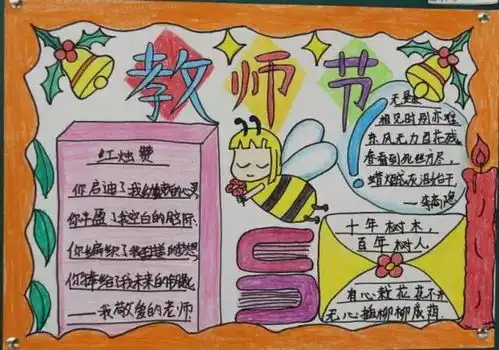 教师节
红烛赞
你启迪了我幼稚的心灵
你丰盈了我空白的脑际
你编织了我的梦想
你捧给了我未来的
——我敬爱的老师
无题
相见时别亦难
东风无力百花残
春蚕到死丝方尽，
蜡烛成灰泪始干
——李商隐
十年树木，
百年树人
有心栽花花不开
无心插柳柳成荫